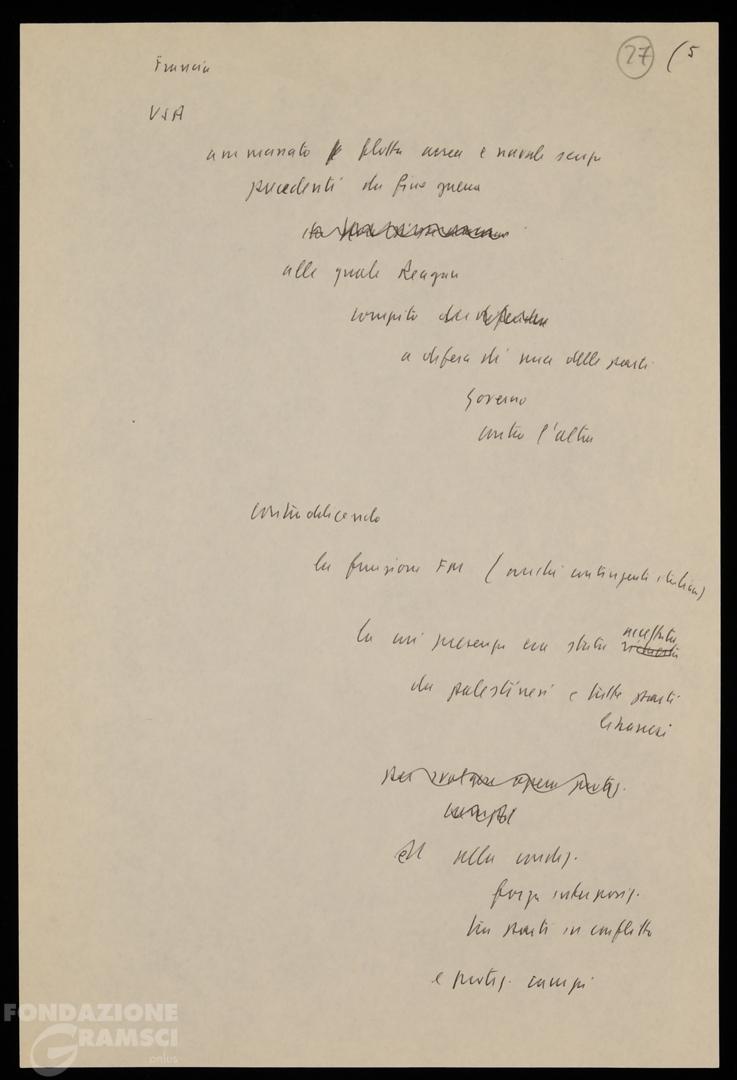 27 (5
Francia
USA
ammassato flotta aerea e navale senza
precedenti da fine guerra
alle quale Reagan
compito
a difesa di una delle parti
Governo
contro l'altra
contraddicendo
la funzione FM (anche contingente italiano)
la cui presenza era stata accettata
richiesta
da palestinesi e tutte parti
libanesi
per svolgere opera protez.
sulla condiz.
forza interposiz.
tra parti in conflitto
e protez. campi
FONDAZIONE
GRAMSCI
onlus